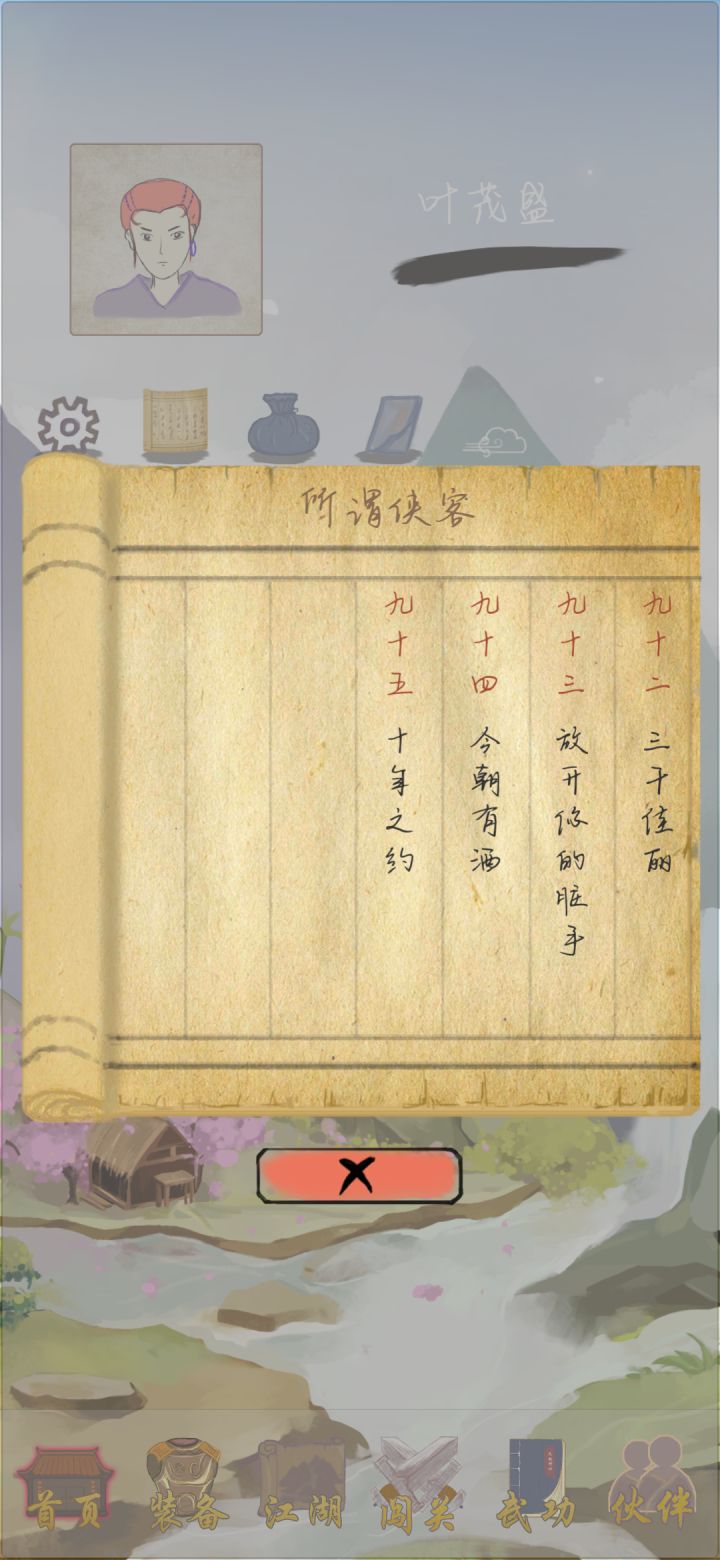 叶茂盛
所谓侠客
九十二 三千佳丽
九十三 放开你的脏手
九十四 今朝有酒
九十五 十年之约
首页
装备
江湖
闯关
武功
伙伴